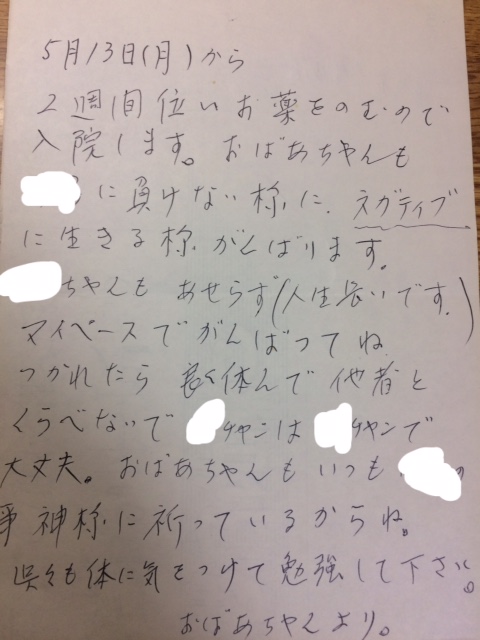 5月13日(月)から
2週間位いお薬をのむので
入院します。おばあちゃんも
に負けない様に、ネガティブ
に生きる様がんばります。
ちゃんも あせらず(人生長いです。)
マイペースでがんばってね
つかれたら 良く休んで 他者と
くらべないで チャンは チャンで
大丈夫。おばあちゃんも いつも の
事 神様に祈っているからね。
呉々も体に気をつけて勉強して下さい。
おばあちゃんより。